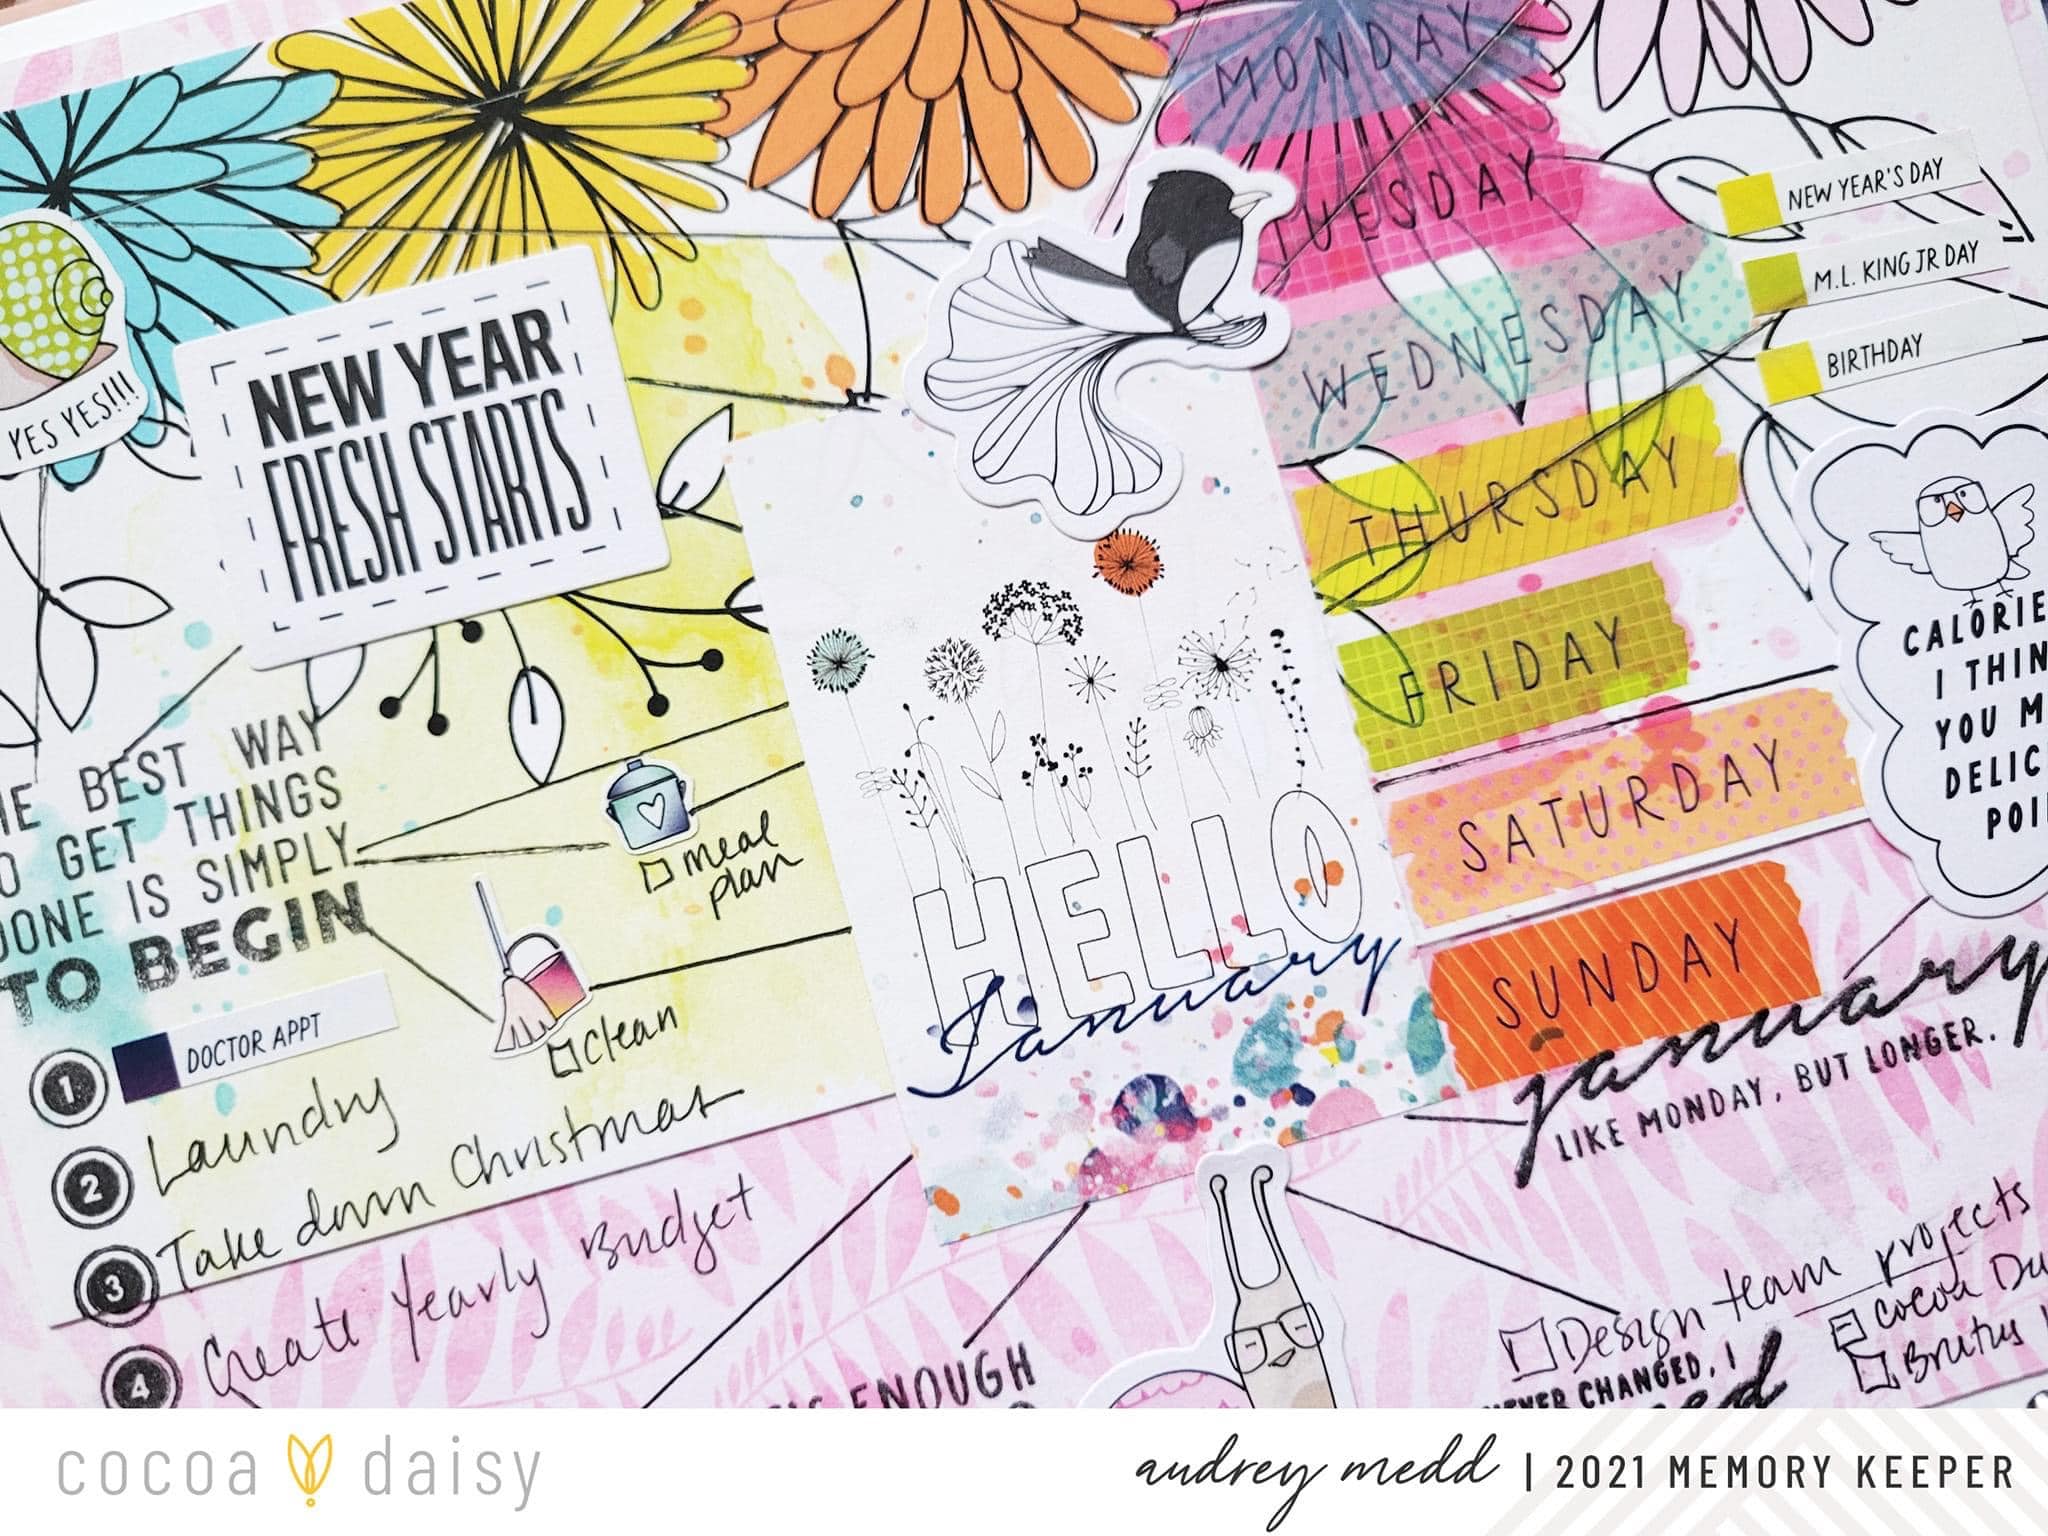 MONDAY
TUESDAY
WEDNESDAY
THURSDAY
FRIDAY
SATURDAY
SUNDAY
NEW YEAR'S DAY
M.L. KING JR DAY
BIRTHDAY
YES YES!!!
NEW YEAR
FRESH STARTS
BEST WAY
GET THINGS
IS SIMPLY
TO BEGIN
meal
plan
clean
HELLO
January
I
YOU
january
LIKE MONDAY, BUT LONGER.
1 DOCTOR APPT
2 Laundry
3 Take down Christmas
4 Create Yearly Budget
ENOUGH
Design team projects
Cocoa
Brutus
CHANGED, I
cocoa daisy
audrey medd | 2021 MEMORY KEEPER